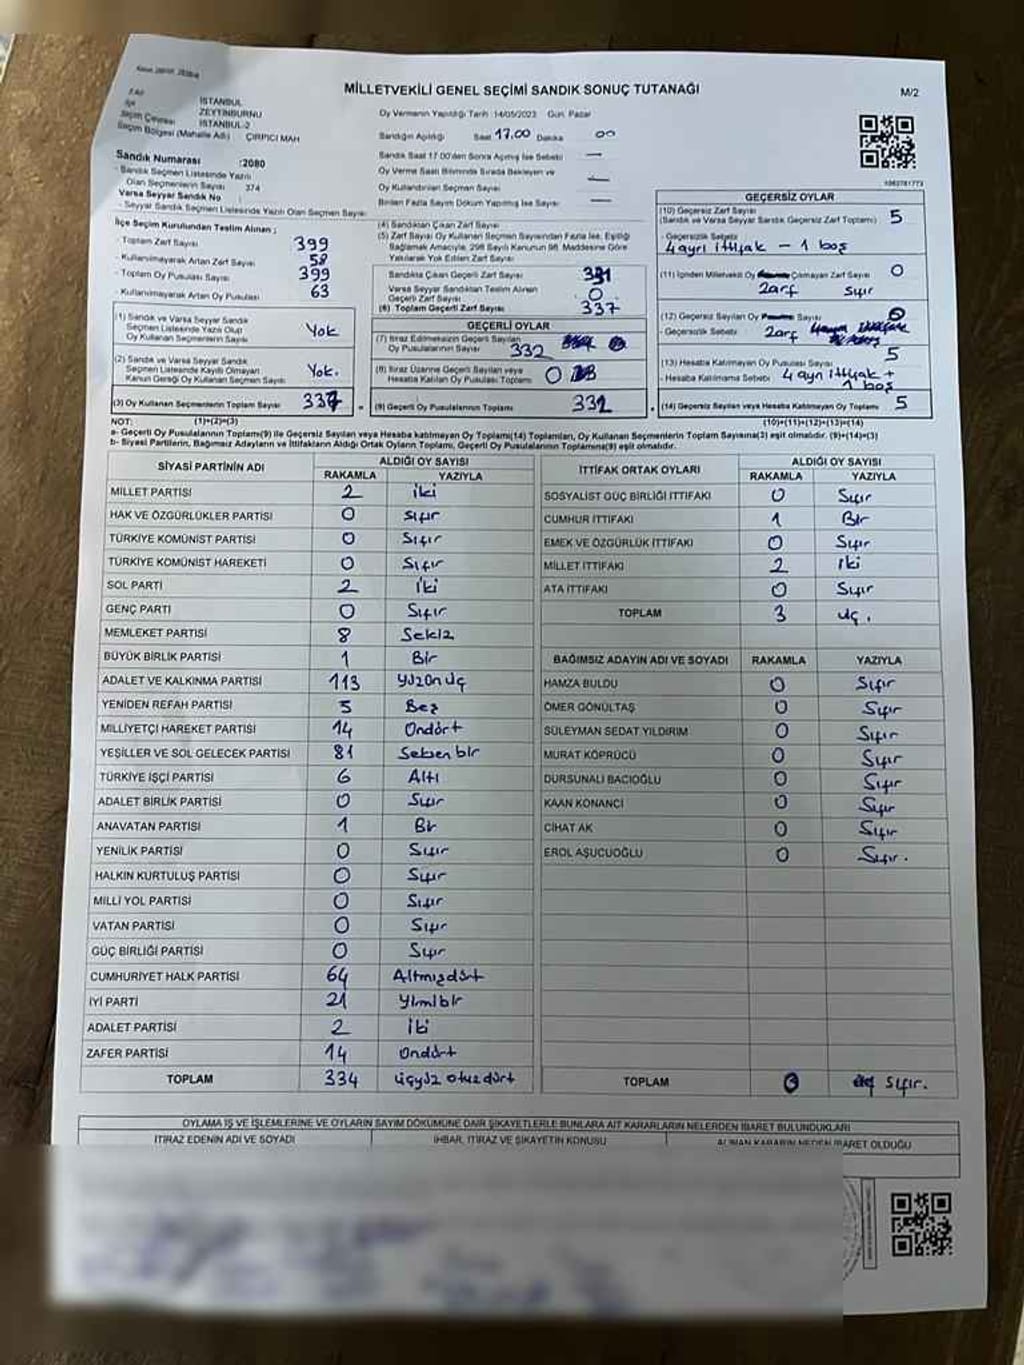 MİLLETVEKİLİ GENEL SEÇİMİ SANDIK SONUÇ TUTANAĞI
M/2
İli İSTANBUL
İlçe ZEYTİNBURNU
Seçim Çevresi İSTANBUL-2
Seçim Bölgesi (Mahalle Adı) : ÇIRPICI MAH
Oy Vermenin Yapıldığı Tarih : 14/05/2023 Gün: Pazar
Sandığın Açılışı Saat 17.00 Dakika 00
Sandık Saat 17.00'den Sonra Açılmış İse Sebebi —
Oy Verme Saati Bitiminde Sırada Bekleyen ve
Oy Kullandırılan Seçmen Sayısı —
Birden Fazla Sayım Döküm Yapılmış İse Sayısı —
Sandık Numarası :2080
- Sandık Seçmen Listesinde Yazılı
Olan Seçmenlerin Sayısı 374
Varsa Seyyar Sandık No
- Seyyar Sandık Seçmen Listesinde Yazılı Olan Seçmen Sayısı
İlçe Seçim Kurulundan Teslim Alınan ;
- Toplam Zarf Sayısı 399
- Kullanılmayarak Artan Zarf Sayısı 58
- Toplam Oy Pusulası Sayısı 399
- Kullanılmayarak Artan Oy Pusulası 63
(1) Sandık ve Varsa Seyyar Sandık
Seçmen Listesinde Yazılı Olup
Oy Kullanan Seçmenlerin Sayısı Yok
(2) Sandık ve Varsa Seyyar Sandık
Seçmen Listesinde Kayıtlı Olmayan
Kanun Gereği Oy Kullanan Seçmen Sayısı Yok.
(3) Oy Kullanan Seçmenlerin Toplam Sayısı 337
(4) Sandıktan Çıkan Zarf Sayısı
(5) Zarf Sayısı Oy Kullanan Seçmen Sayısından Fazla İse, Eşitliği
Sağlamak Amacıyla, 298 Sayılı Kanunun 98. Maddesine Göre
Yakılarak Yok Edilen Zarf Sayısı
Sandıkta Çıkan Geçerli Zarf Sayısı
Varsa Seyyar Sandıktan Teslim Alınan
Geçerli Zarf Sayısı 0
(6) Toplam Geçerli Zarf Sayısı 337
GEÇERLİ OYLAR
(7) İtiraz Edilmeksizin Geçerli Sayılan
Oy Pusulalarının Sayısı 332
(8) İtiraz Üzerine Geçerli Sayılan veya
Hesaba Katılan Oy Pusulaları Toplamı 0
(9) Geçerli Oy Pusulalarının Toplamı 332
1063781773
GEÇERSİZ OYLAR
(10) Geçersiz Zarf Sayısı
(Sandık ve Varsa Seyyar Sandık Geçersiz Zarf Toplamı) 5
- Geçersizlik Sebebi
4 ayrı ittifak - 1 boş
(11) İçinden Milletvekili Oy Çıkmayan Zarf Sayısı 0
zarf Sıfır
(12) Geçersiz Sayılan Oy Sayısı 0
- Geçersizlik Sebebi zarf
(13) Hesaba Katılmayan Oy Pusulası Sayısı 5
- Hesaba Katılmama Sebebi 4 ayrı ittifak +
1 boş
(14) Geçersiz Sayılan veya Hesaba Katılmayan Oy Toplamı 5
NOT: (1)+(2)=(3) (10)+(11)+(12)+(13)=(14)
a- Geçerli Oy Pusulalarının Toplamı(9) ile Geçersiz Sayılan veya Hesaba katılmayan Oy Toplamı(14) Toplamları, Oy Kullanan Seçmenlerin Toplam Sayısına(3) eşit olmalıdır. (9)+(14)=(3)
b- Siyasi Partilerin, Bağımsız Adayların ve İttifakların Aldığı Oyların Toplamı, Geçerli Oy Pusulalarının Toplamına(9) eşit olmalıdır.
SİYASİ PARTİNİN ADI ALDIĞI OY SAYISI
RAKAMLA YAZIYLA
MİLLET PARTİSİ 2 iki
HAK VE ÖZGÜRLÜKLER PARTİSİ 0 sıfır
TÜRKİYE KOMÜNİST PARTİSİ 0 Sıfır
TÜRKİYE KOMÜNİST HAREKETİ 0 Sıfır
SOL PARTİ 2 iki
GENÇ PARTİ 0 Sıfır
MEMLEKET PARTİSİ 8 Sekiz
BÜYÜK BİRLİK PARTİSİ 1 Bir
ADALET VE KALKINMA PARTİSİ 113 yüzonüç
YENİDEN REFAH PARTİSİ 5 Beş
MİLLİYETÇİ HAREKET PARTİSİ 14 Ondört
YEŞİLLER VE SOL GELECEK PARTİSİ 81 Seksenbir
TÜRKİYE İŞÇİ PARTİSİ 6 Altı
ADALET BİRLİK PARTİSİ 0 Sıfır
ANAVATAN PARTİSİ 1 Bir
YENİLİK PARTİSİ 0 Sıfır
HALKIN KURTULUŞ PARTİSİ 0 Sıfır
MİLLİ YOL PARTİSİ 0 Sıfır
VATAN PARTİSİ 0 Sıfır
GÜÇ BİRLİĞİ PARTİSİ 0 Sıfır
CUMHURİYET HALK PARTİSİ 64 Altmışdört
İYİ PARTİ 21 Yirmibir
ADALET PARTİSİ 2 iki
ZAFER PARTİSİ 14 Ondört
TOPLAM 334 üçyüz otuzdört
İTTİFAK ORTAK OYLARI ALDIĞI OY SAYISI
RAKAMLA YAZIYLA
SOSYALİST GÜÇ BİRLİĞİ İTTİFAKI 0 Sıfır
CUMHUR İTTİFAKI 1 Bir
EMEK VE ÖZGÜRLÜK İTTİFAKI 0 Sıfır
MİLLET İTTİFAKI 2 iki
ATA İTTİFAKI 0 Sıfır
TOPLAM 3 üç.
BAĞIMSIZ ADAYIN ADI VE SOYADI RAKAMLA YAZIYLA
HAMZA BULDU 0 Sıfır
ÖMER GÖNÜLTAŞ 0 Sıfır
SÜLEYMAN SEDAT YILDIRIM 0 Sıfır
MURAT KÖPRÜCÜ 0 Sıfır
DURSUNALİ BACIOĞLU 0 Sıfır
KAAN KONANCİ 0 Sıfır
CİHAT AK 0 Sıfır
EROL AŞUCUOĞLU 0 Sıfır.
TOPLAM 0 Sıfır.
OYLAMA İŞ VE İŞLEMLERİNE VE OYLARIN SAYIM DÖKÜMÜNE DAİR ŞİKAYETLERLE BUNLARA AİT KARARLARIN NELERDEN İBARET BULUNDUKLARI
İTİRAZ EDENİN ADI VE SOYADI İHBAR, İTİRAZ VE ŞİKAYETİN KONUSU ALINAN KARARIN NEDEN İBARET OLDUĞU